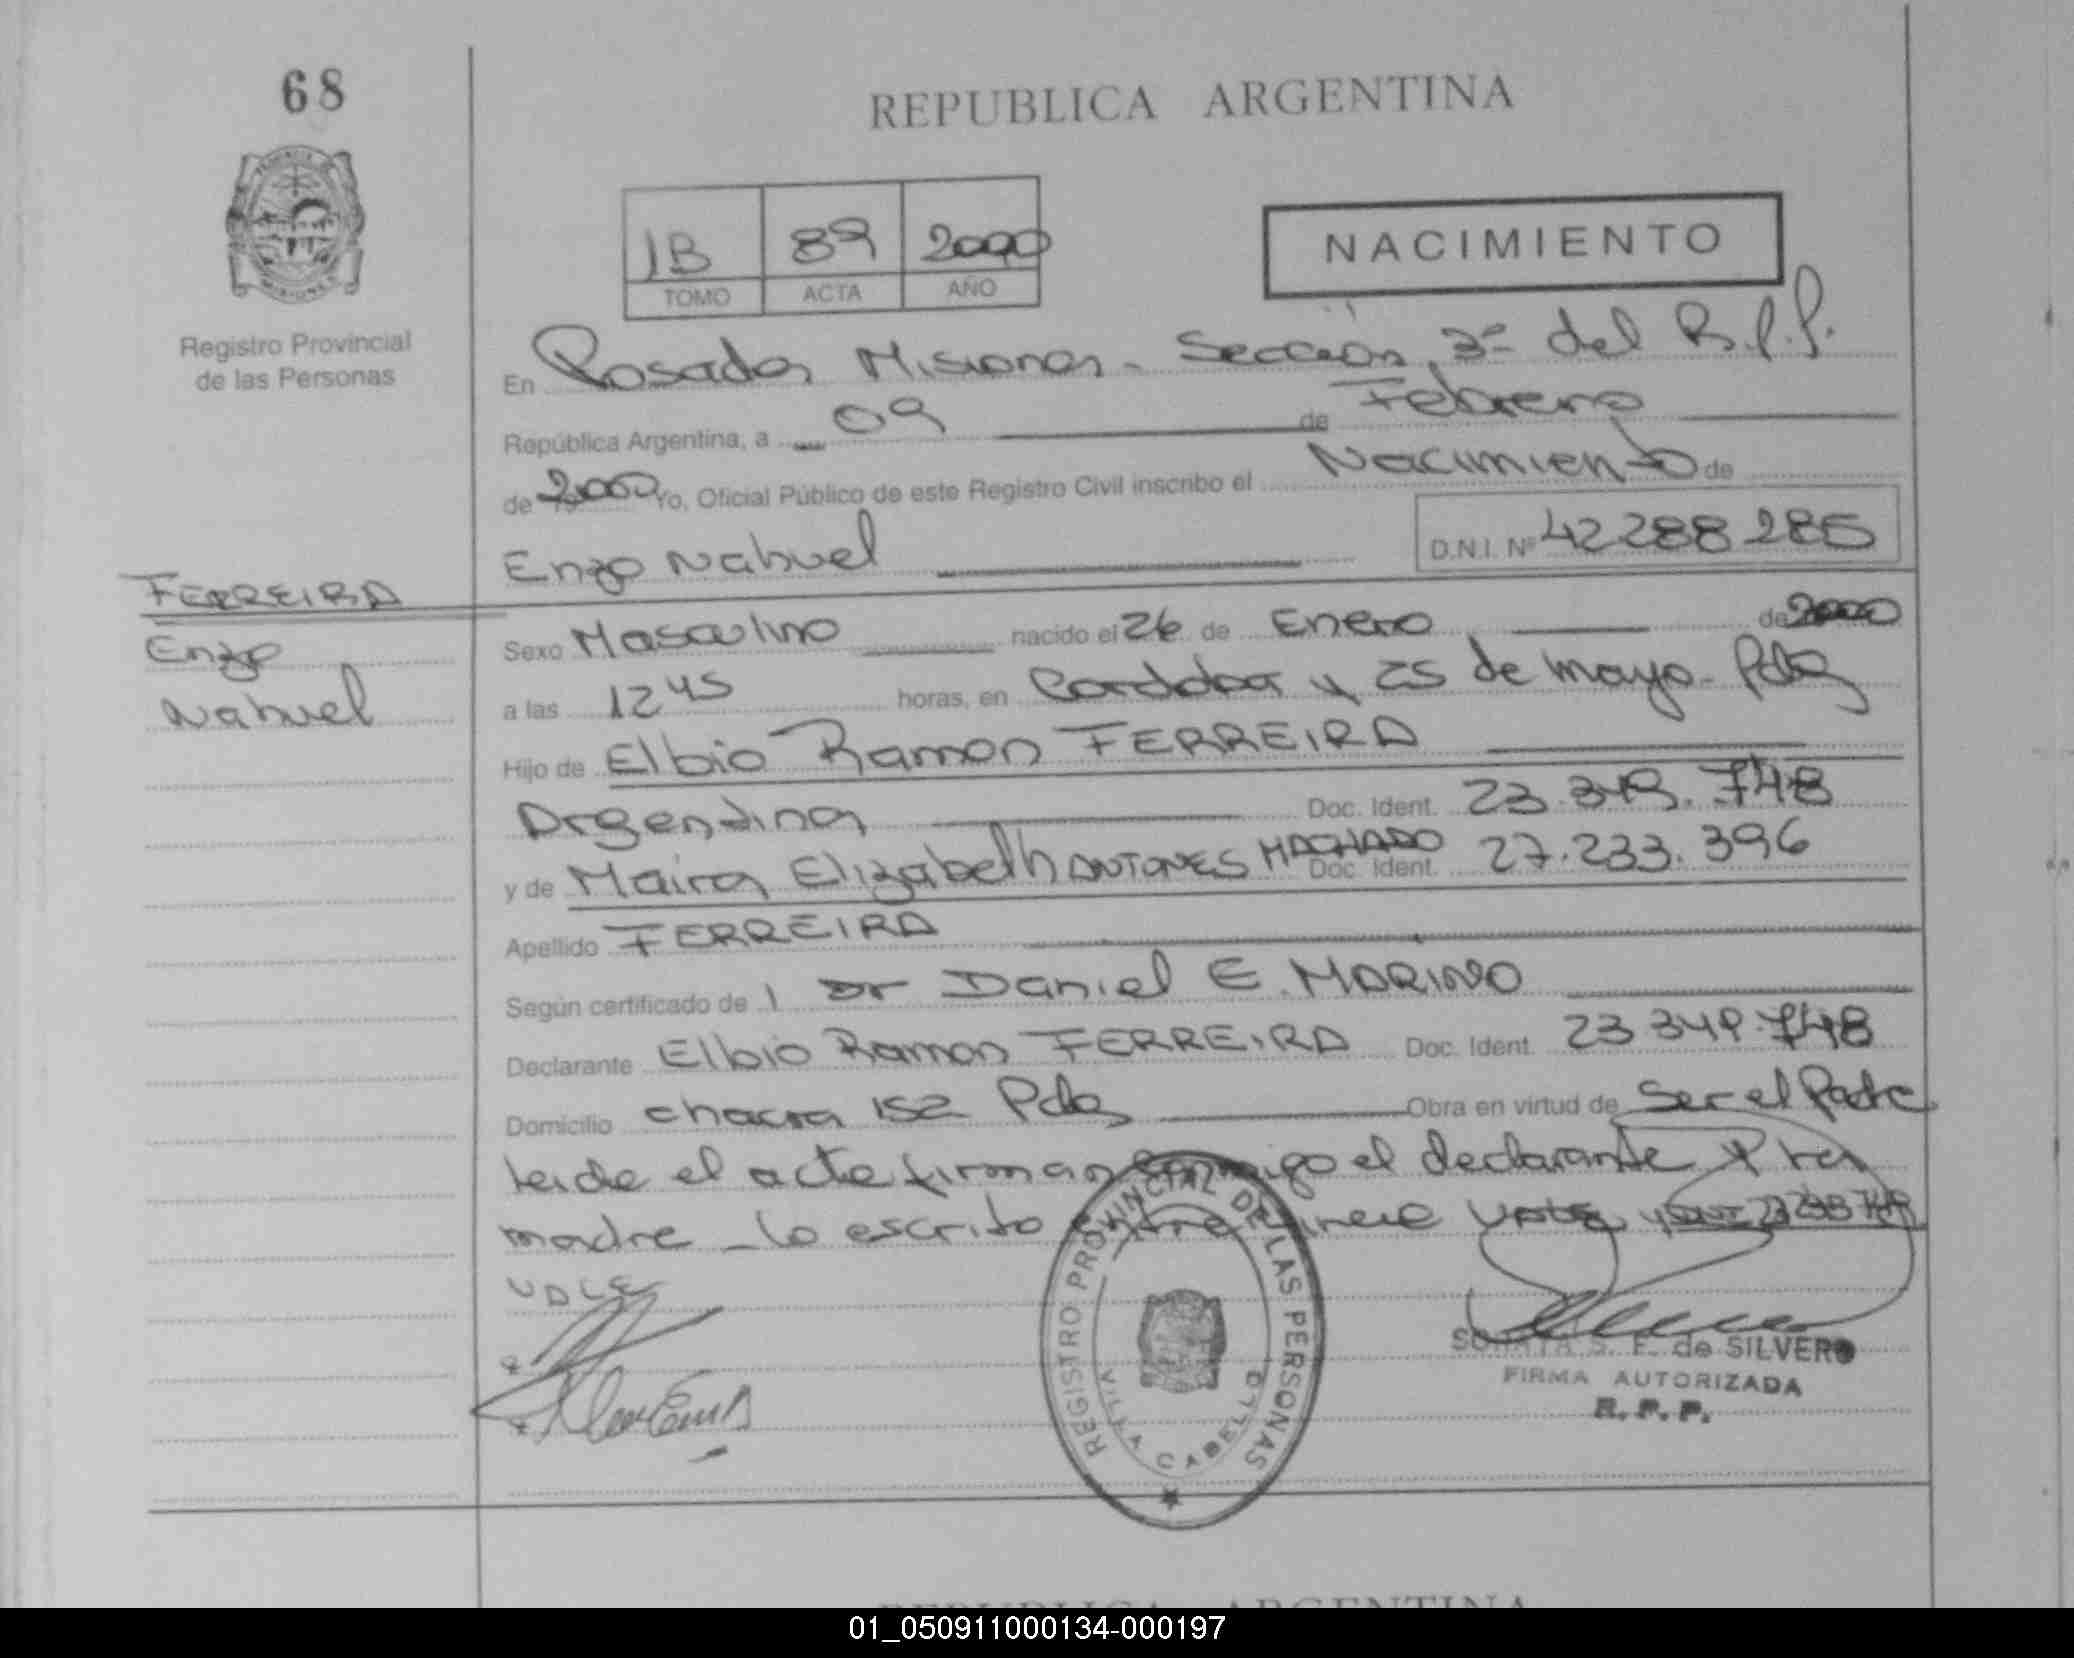 68
REPUBLICA ARGENTINA
1B 89 2000
TOMO ACTA AÑO
NACIMIENTO
Registro Provincial
de las Personas
En Posadas Misiones - Sección 3ª del R.P.P.
República Argentina, a 09 de Febrero
de 2000 Yo, Oficial Público de este Registro Civil inscribo el Nacimiento de
Enzo Nahuel D.N.I. Nº 42 288 285
FERREIRA
Enzo
Nahuel
Sexo Masculino nacido el 26 de Enero de 2000
a las 12 45 horas, en Cordoba y 25 de mayo - Pdas
Hijo de Elbio Ramon FERREIRA
Argentina Doc. Ident. 23.349.748
y de Maira Elizabelh ANTONES MACHADO Doc. Ident. 27.233.396
Apellido FERREIRA
Según certificado de 1 Dr Daniel E. MARINO
Declarante Elbio Ramon FERREIRA Doc. Ident. 23 349.748
Domicilio chacra 152 Pdas Obra en virtud de Ser el Padre
leida el acta firman conmigo el declarante y la
madre - lo escrito entre linea
VALE
REGISTRO PROVINCIAL DE LAS PERSONAS
VILLA CABELLO
S. F. de SILVERO
FIRMA AUTORIZADA
R. P. P.
REPUBLICA ARGENTINA
01_050911000134-000197